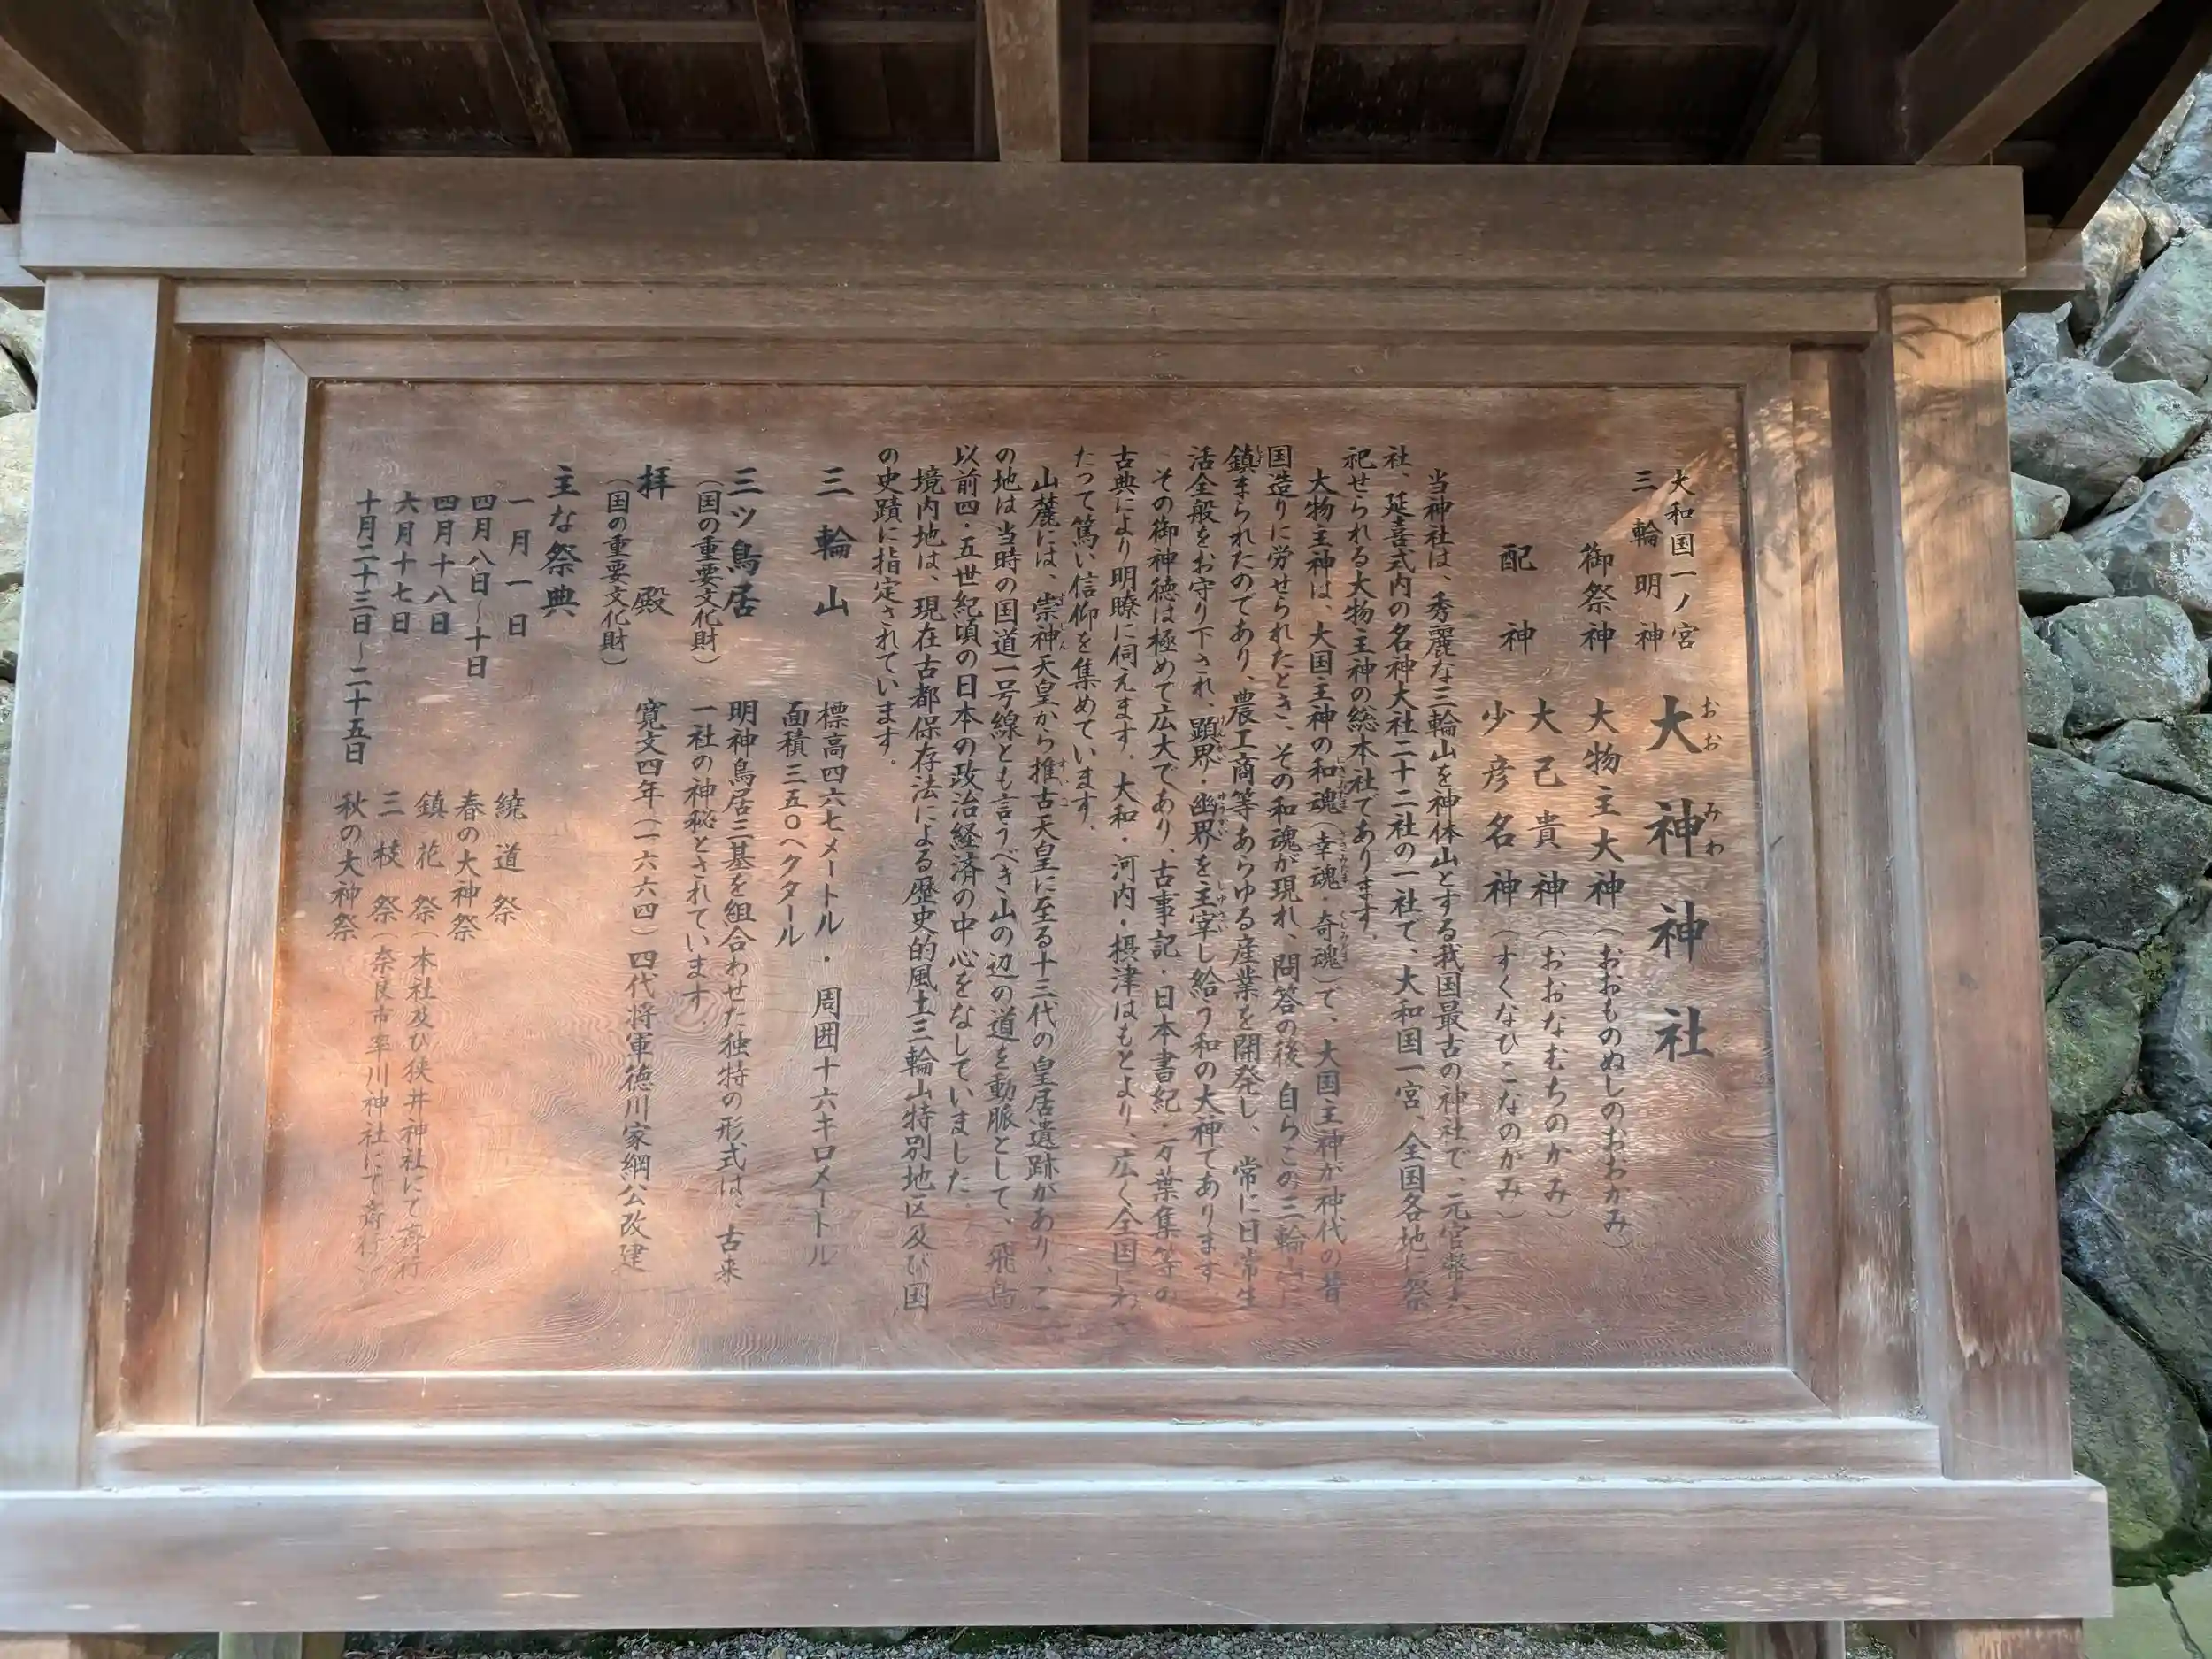 大和国一ノ宮
三輪明神
大神神社
おお みわ
御祭神 大物主大神(おおものぬしのおおかみ)
配神 大己貴神(おおなむちのかみ)
少彦名神(すくなひこなのかみ)
当神社は、秀麗な三輪山を神体山とする我国最古の神社で、元官幣大
社、延喜式内の名神大社二十二社の一社で、大和国一宮、全国各地に祭
祀せられる大物主神の総本社であります。
大物主神は、大国主神の和魂(幸魂・奇魂)で、大国主神が神代の昔
国造りに労せられたとき、その和魂が現れ、問答の後、自らこの三輪山に
鎮まられたのであり、農工商等あらゆる産業を開発し、常に日常生
活全般をお守り下され、顕界・幽界を主宰し給う和の大神であります
その御神徳は極めて広大であり、古事記・日本書紀・万葉集等の
古典により明瞭に伺えます。大和・河内・摂津はもとより、広く全国にわ
たって篤い信仰を集めています。
山麓には、崇神天皇から推古天皇に至る十三代の皇居遺跡があり、こ
の地は当時の国道一号線とも言うべき山の辺の道を動脈として、飛鳥
以前四・五世紀頃の日本の政治経済の中心をなしていました。
境内地は、現在古都保存法による歴史的風土三輪山特別地区及び国
の史蹟に指定されています。
三輪山 標高四六七メートル・周囲十六キロメートル
面積三五〇ヘクタール
三ツ鳥居 明神鳥居三基を組合わせた独特の形式は、古来
(国の重要文化財) 一社の神秘とされています。
拝殿 寛文四年(一六六四)四代将軍徳川家綱公改建
(国の重要文化財)
主な祭典
一月一日 繞道祭
四月八日~十日 春の大神祭
四月十八日 鎮花祭(本社及び狭井神社にて斎行)
六月十七日 三枝祭(奈良市率川神社にて斎行)
十月二十三日~二十五日 秋の大神祭